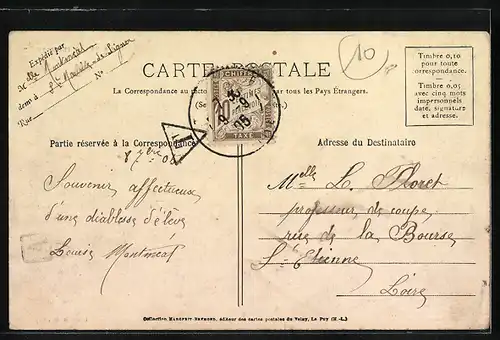 Expédié par
Melle
demt à St Maurice-de-Lignon
Rue No
10
CARTE POSTALE
La Correspondance au recto par tous les Pays Étrangers.
Timbre 0,10
pour toute
correspondance.
Timbre 0,05
avec cinq mots
imprersonnels
date, signature
et adresse.
CHIFFRE
TAXE
T
Partie réservée à la Correspondance
8 7bre 06
Souvenir affectueux
d'une diablesse d'élève
Louise
Adresse du Destinataire
Melle L. Floret
professeur de coupe
rue de la Bourse
St Etienne
Loire
Collection MARGERIT-BREMOND, éditeur des cartes postales du Velay, Le Puy (H.-L.)